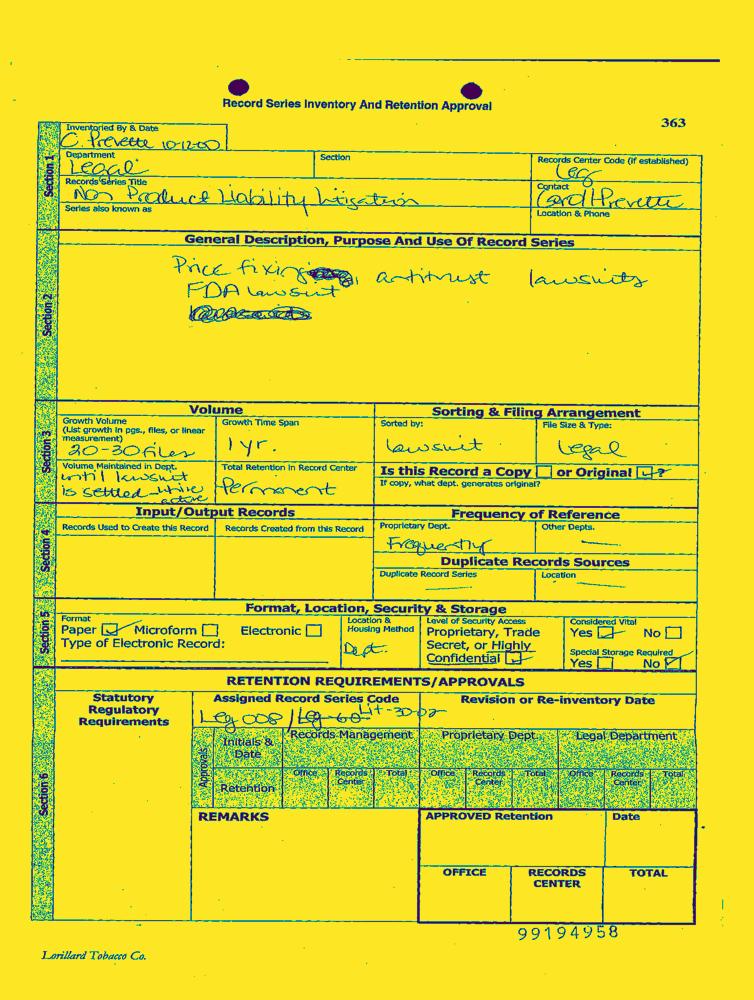 Record Series Inventory And Retention Approval
363
Inventoried By & Date
C. Prevette 10-12-00
Department
Legal
Section
Records Center Code (if established)
Leg
Section 1
Records Series Title
Non Product Liability Litigation
Contact
Carol Prevette
Series also known as
Location & Phone
General Description, Purpose And Use Of Record Series
Section 2
Price fixing, antitrust lawsuits
FDA lawsuit
Volume
Sorting & Filing Arrangement
Section 3
Growth Volume
(List growth in pgs., files, or linear
measurement)
20-30 files
Growth Time Span
1 yr.
Sorted by:
lawsuit
File Size & Type:
Legal
Volume Maintained in Dept.
until lawsuit
is settled - while
active
Total Retention in Record Center
Permanent
Is this Record a Copy or Original ?
If copy, what dept. generates original?
Input/Output Records
Frequency of Reference
Section 4
Records Used to Create this Record
Records Created from this Record
Proprietary Dept.
Frequently
Other Depts.
Duplicate Records Sources
Duplicate Record Series
Location
Format, Location, Security & Storage
Section 5
Format
Paper Microform Electronic
Type of Electronic Record:
Location &
Housing Method
Dept.
Level of Security Access
Proprietary, Trade
Secret, or Highly
Confidential
Considered Vital
Yes No
Special Storage Required
Yes No
RETENTION REQUIREMENTS/APPROVALS
Section 6
Statutory
Regulatory
Requirements
Assigned Record Series Code
Leg 008 / Leg-60 Lit-30-02
Revision or Re-inventory Date
Approvals
Initials &
Date
Records Management
Proprietary Dept.
Legal Department
Retention
Office Records Center Total Office Records Center Total Office Records Center Total
REMARKS
APPROVED Retention
Date
OFFICE
RECORDS
CENTER
TOTAL
99194958
Lorillard Tobacco Co.